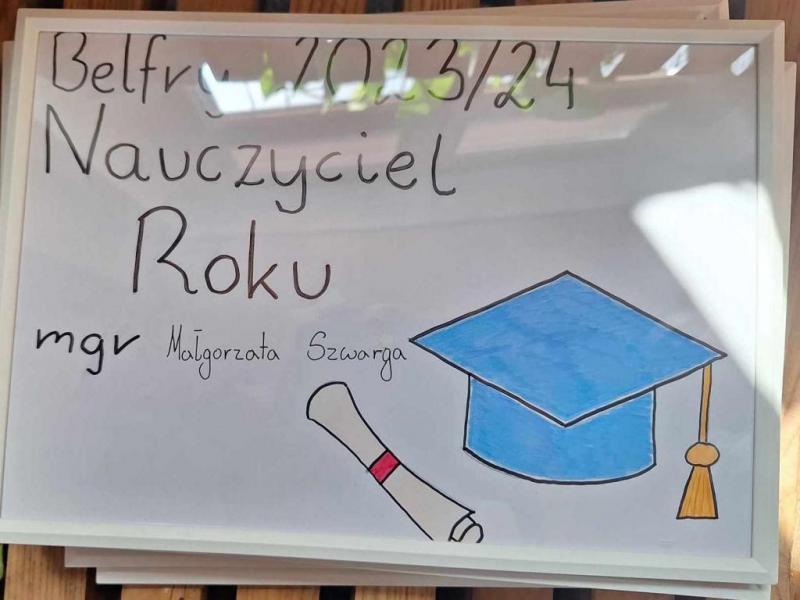 Belfry 2023/24
Nauczyciel
Roku
mgr Małgorzata Szwarga